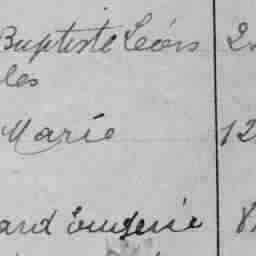 Baptiste Léon 2
les
Marie 12
ard Eugenie 8